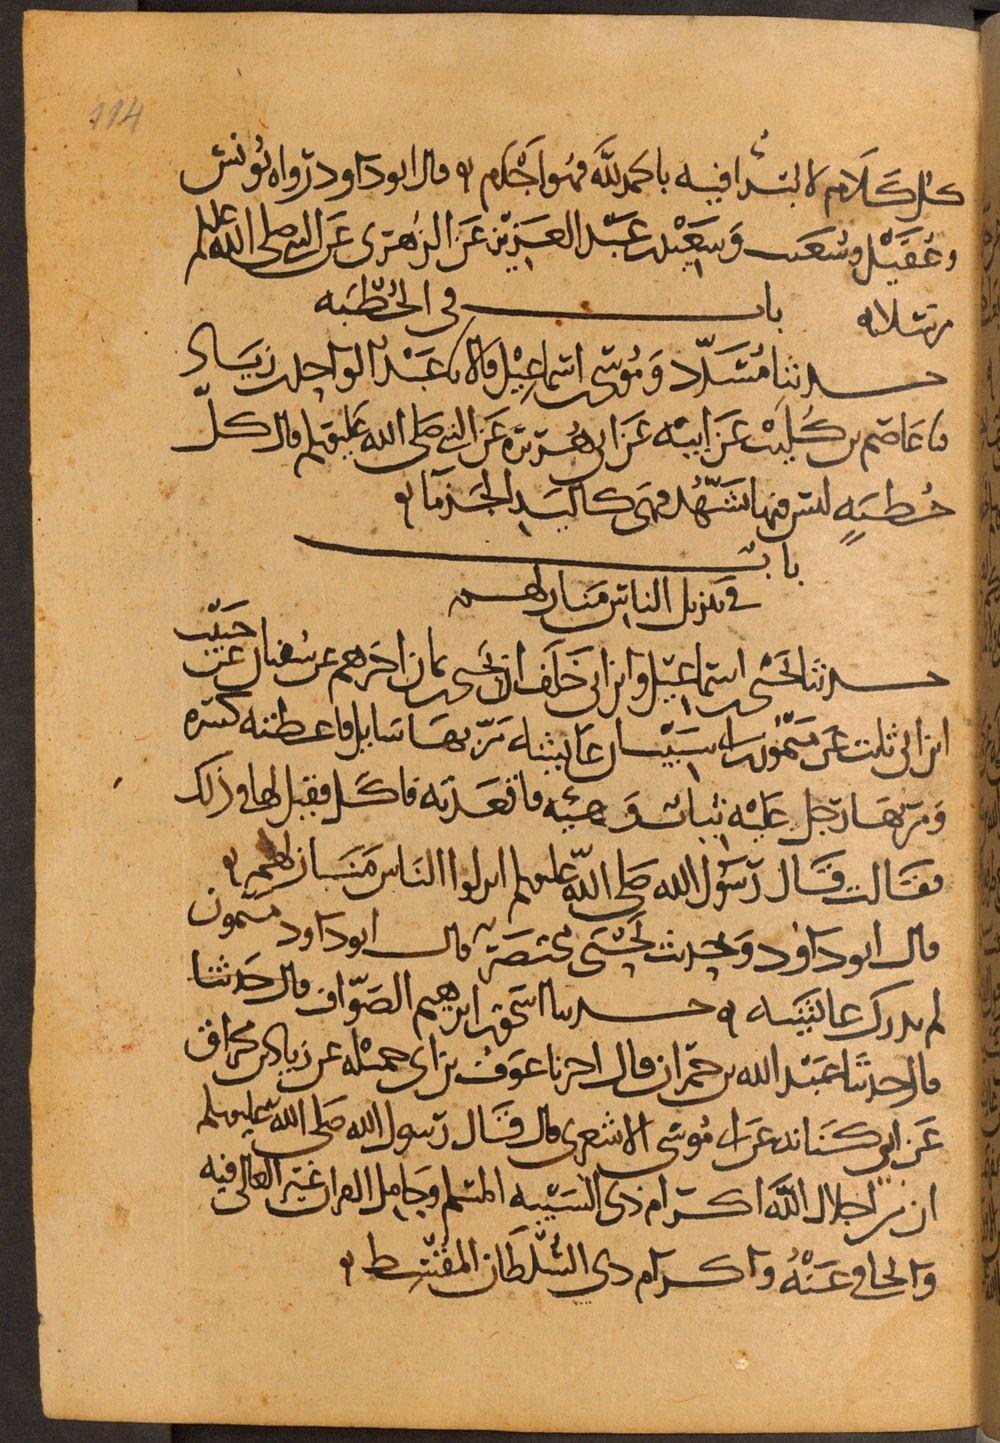 114
كل كلام لا يبتدأ فيه بالحمد لله فهو اجذم قال ابو داود رواه يونس
وعقيل وشعيب وسعيد بن عبد العزيز عن الزهري عن النبي صلى الله عليه وسلم
مرسلا باب في الخطبة
حدثنا مسدد وموسى بن اسماعيل قالا نا عبد الواحد بن زياد
نا عاصم بن كليب عن ابيه عن ابي هريرة عن النبي صلى الله عليه وسلم قال كل
خطبة ليس فيها تشهد فهي كاليد الجذما
باب
في تنزيل الناس منازلهم
حدثنا يحيى بن اسماعيل وابن ابي خلف ان يحيى بن يمان اخبرهم عن سفيان عن حبيب
ابن ابي ثابت عن ميمون بن ابي شبيب ان عائشة مر بها سايل فاعطته كسرة
ومر بها رجل عليه ثياب وهيئة فاقعدته فاكل فقيل لها في ذلك
فقالت قال رسول الله صلى الله عليه وسلم انزلوا الناس منازلهم
قال ابو داود وحديث يحيى مختصر قال ابو داود ميمون
لم يدرك عائشة حدثنا اسحق بن ابرهيم الصواف قال حدثنا
قال حدثنا عبد الله بن حمران قال اخبرنا عوف بن ابي جميلة عن زياد بن مخراق
عن ابي كنانه عن ابي موسى الاشعري قال قال رسول الله صلى الله عليه وسلم
ان من اجلال الله اكرام ذي الشيبه المسلم وحامل القران غير الغالي فيه
والجافي عنه واكرام ذي السلطان المقسط